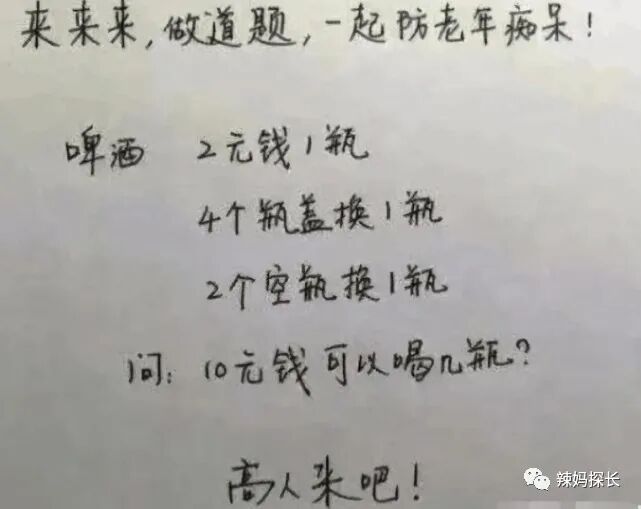 来来来,做道题,一起防老年痴呆!
啤酒 2元钱1瓶
4个瓶盖换1瓶
2个空瓶换1瓶
问:10元钱可以喝几瓶?
高人来吧!
辣妈探长